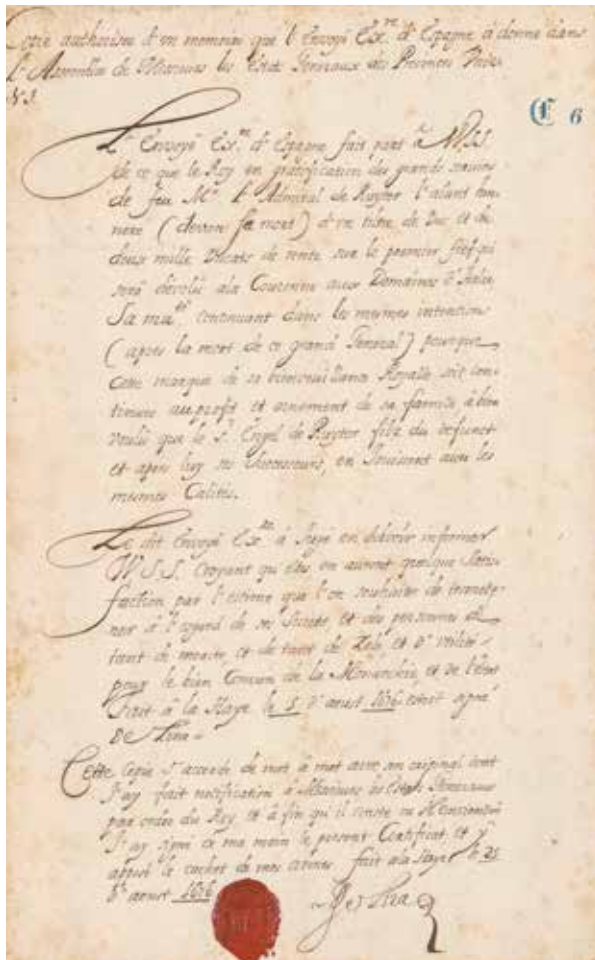 Copie authorisée d'un memoire que l'Envoyé Ex.re d'Espagne à donné dans
l'Assemblée de Messieurs les Estats Generaux des Provinces Unies
N. 3.
C 6
L'Envoyé Ex.re d'Espagne fait part à V.S.S.
de ce que le Roy en gratification des grands services
de feu M.r l'Admiral de Ruyter l'aiant hon-
noré (devant sa mort) d'un titre de Duc et de
deux mille Ducats de rente sur le premier fief qui
sera dévolu à la Couronne aux Domaines d'Italie
Sa Ma.té continuant dans les mesmes intentions
(apres la mort de ce grand General) pourque
Cette marque de sa bienveuillance Royalle soit con-
tinuée au profit et ornement de sa famille, à bien
voulu que le S.r Engel de Ruyter filz du defunct
et apres luy ses Successeurs, en Jouissent avec les
mesmes Calités.
Le dit Envoyé Ex.re à Jugé en debvoir informer
V.S.S. Croyant qu'elles en auront quelque satis-
faction par l'estime que l'on souhaite de
à l'egard de ses Sujets, et des personnes de
tant de merite et de tant de Zele, et d'utilité
pour le bien Comun de la Monarchie, et de l'Estat
Fait à la Haye le 5 d'aoust 1676 estoit signé
De Lira =
Cette Copie s'accorde de mot à mot avec son original dont
J'ay fait notification à Messieurs les Estats Generaux
par ordre du Roy, et à fin qu'il conste
J'ay signé de ma main le present Certificat, et y
apposé le cachet de mes armes. fait à la Haye le 25
d'aoust 1676
De Lira